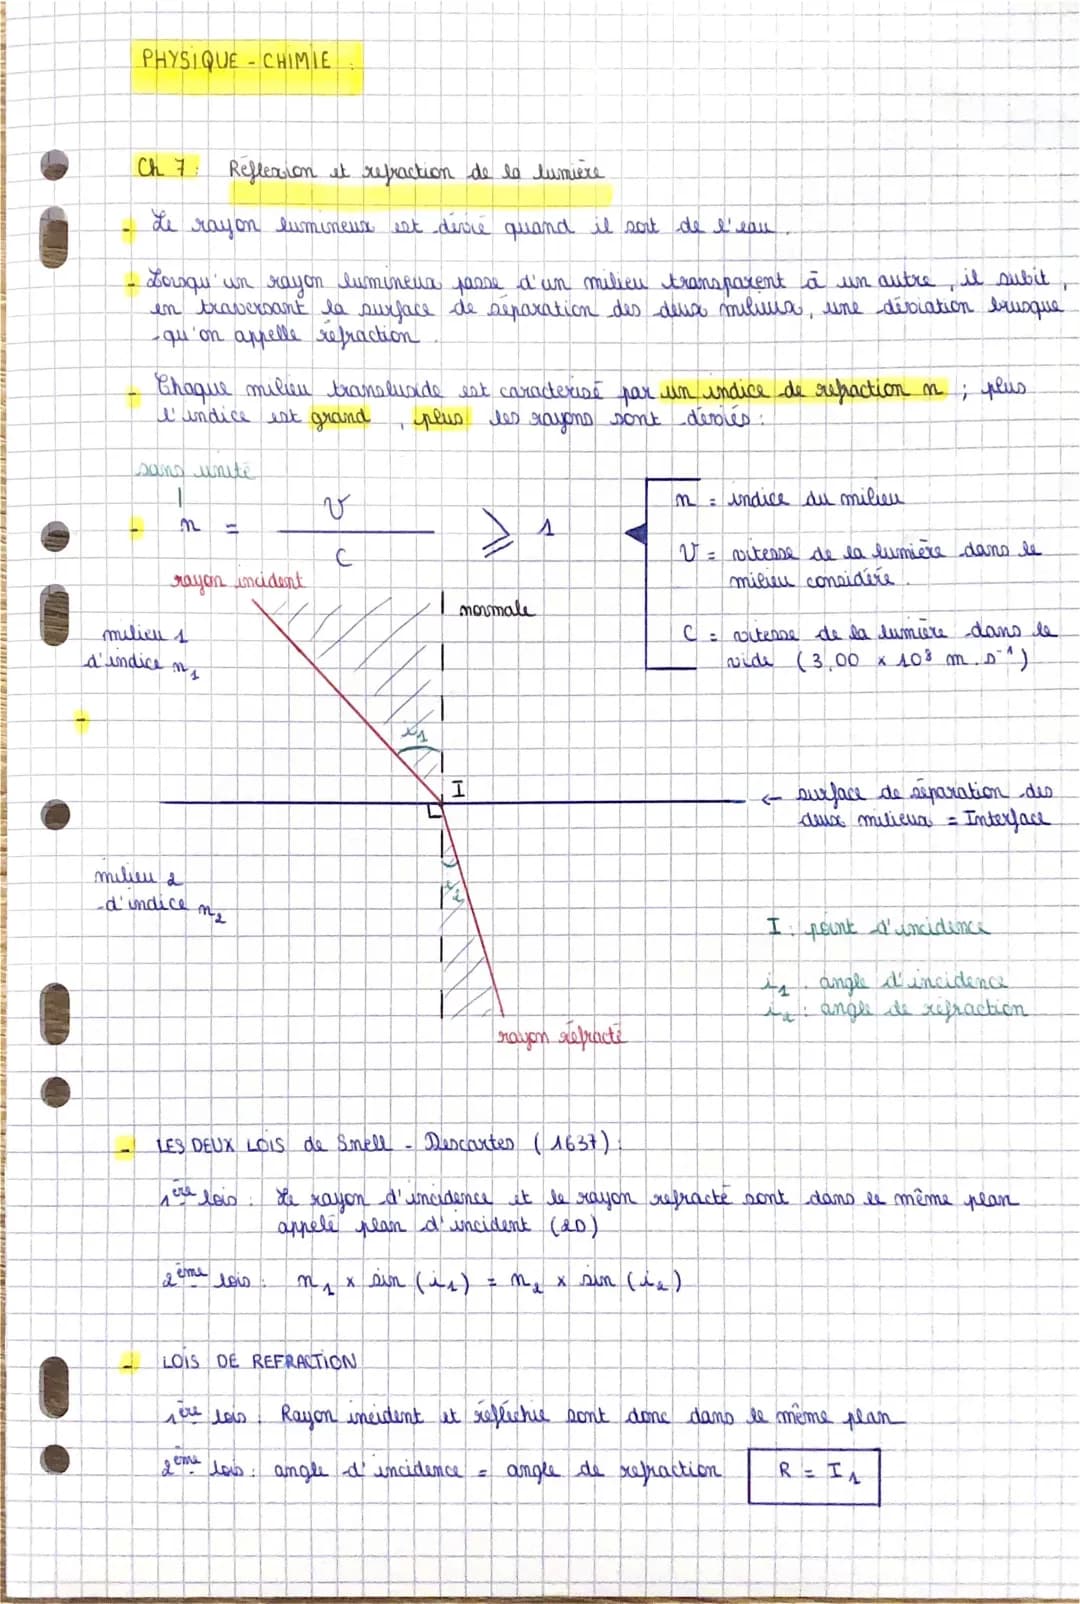 PHYSIQUE - CHIMIE.
Ch 7: Réflexion et refraction de la lumière
- Le rayon lumineux est dévié quand il sort de l'eau.
- Lorsqu'un rayon lumineux passe d'un milieu transparent à un autre, il subit,
en traversant la surface de séparation des deux milieux, une déviation brusque
qu'on appelle réfraction.
- Chaque milieu translucide est caractérisé par un indice de refraction n ; plus
l'indice est grand, plus les rayons sont déviés :
sans unité
- n = V / C ⩾ 1
n = indice du milieu
V = vitesse de la lumière dans le
milieu considéré.
C = vitesse de la lumière dans le
vide (3,00 × 10⁸ m.s⁻¹)
rayon incident
normale
milieu 1
d'indice n₁
-
i₁
I
← surface de séparation des
deux milieux = Interface
milieu 2
d'indice n₂
i₂
I : point d'incidence
i₁ : angle d'incidence
i₂ : angle de réfraction
rayon réfracté
- LES DEUX LOIS de Snell - Descartes (1637) :
1ère lois : Le rayon d'incidence et le rayon refracté sont dans le même plan
appelé plan d'incident (2D)
2ème lois : n₁ × sin (i₁) = n₂ × sin (i₂)
- LOIS DE REFRACTION
1ère lois : Rayon incident et réfléchie sont donc dans le même plan
2ème lois : angle d'incidence = angle de refraction R = I₁